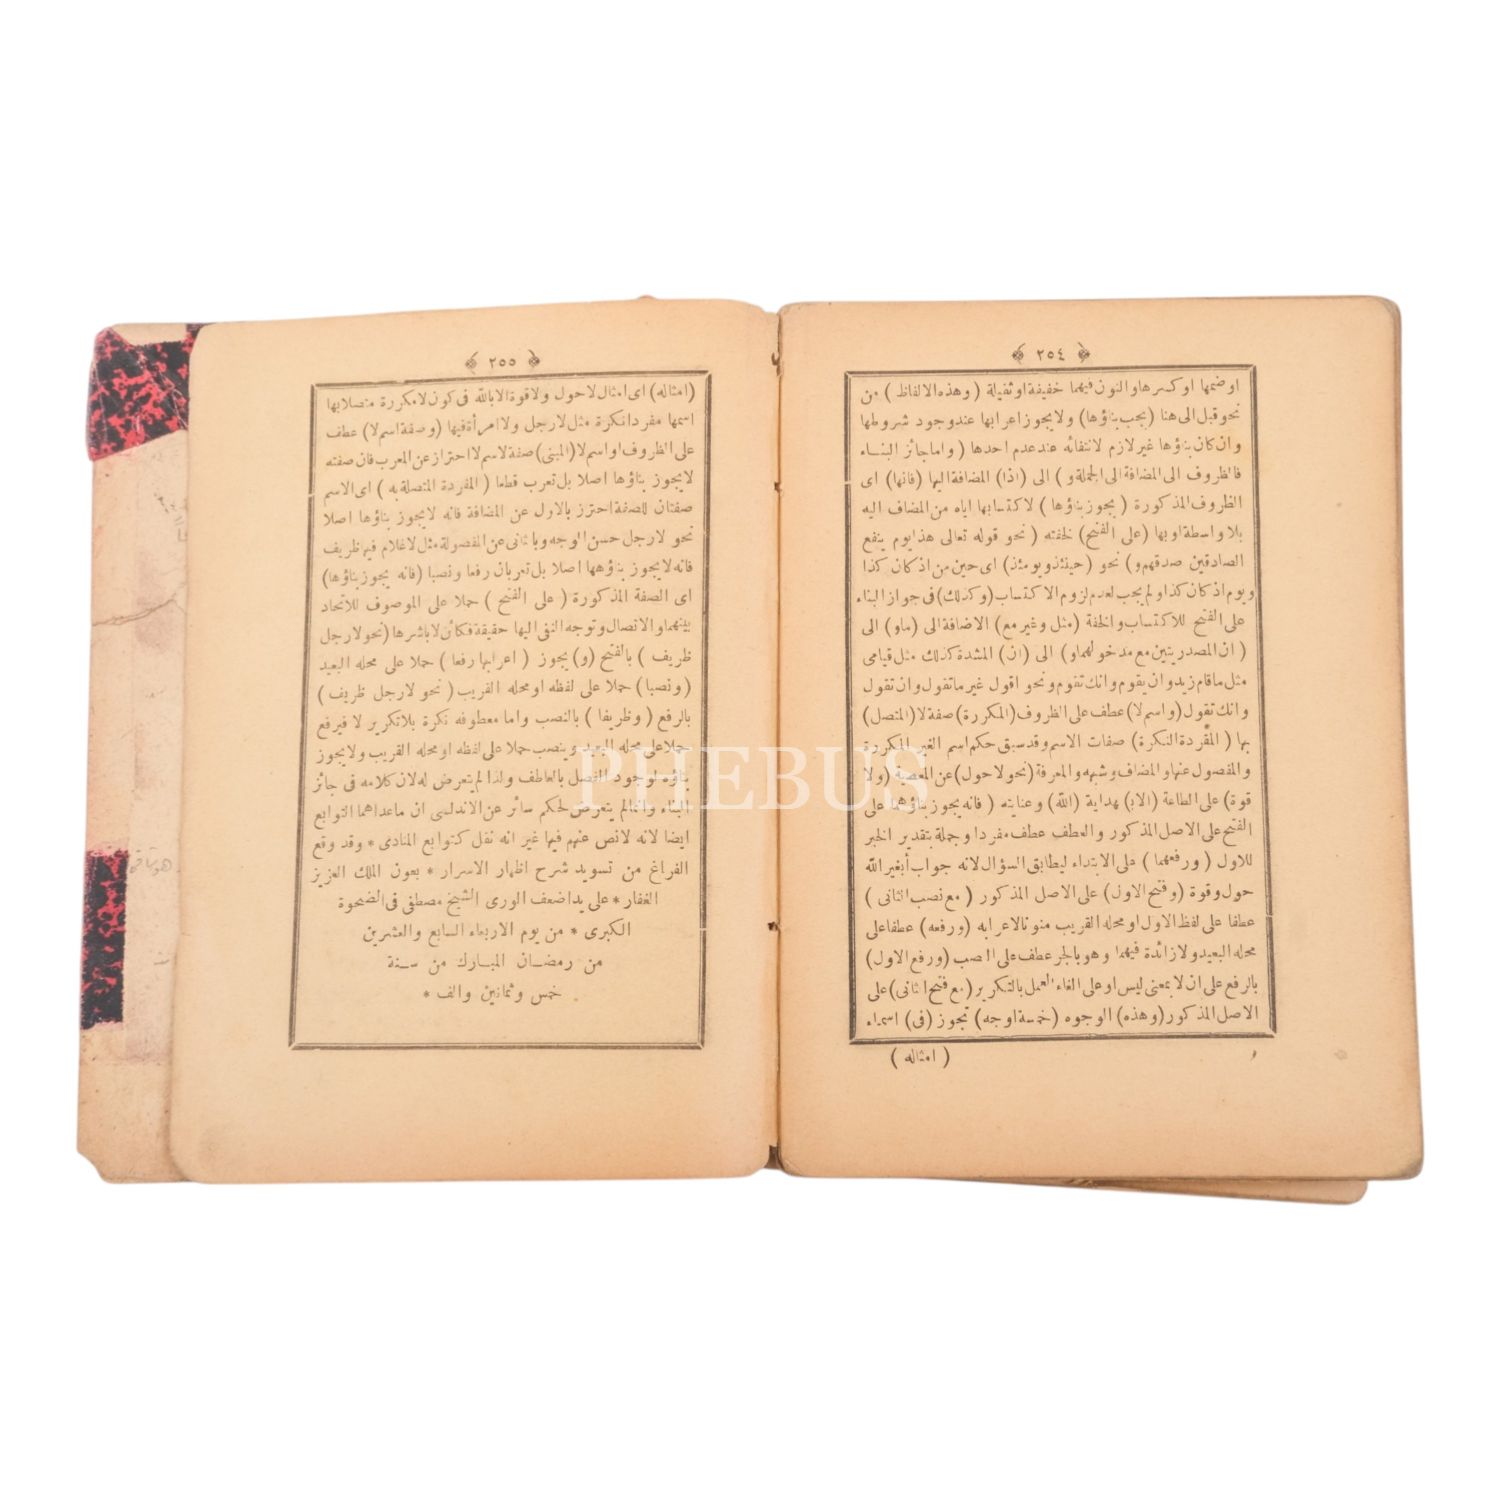 ﴿ ٢٥٤ ﴾
او ضمها او كسرها والنون فيهما خفيفة او ثقيلة ( وهذه الالفاظ ) من
نحو قبل الى هنا (يجب بناؤها) ولا يجوز اعرابها عند وجود شروطها
وان كان بناؤها غير لازم لانتفائه عند عدم احدها ( واما جائز البناء
فالظروف الى المضافة الى الجملة و ) الى (اذا) المضافة اليها (فانها) اى
الظروف المذكورة ( يجوز بناؤها ) لاكتسابها اياه من المضاف اليه
بلا واسطة او بها (على الفتح) لخفته ( نحو قوله تعالى هذا يوم ينفع
الصادقين صدقهم و) نحو (حينئذ ويومئذ) اى حين من اذ كان كذا
ويوم اذ كان كذا ولم يجب لعدم لزوم الاكتساب (وكذلك) فى جواز البناء
على الفتح للاكتساب والخفة (مثل وغير مع) الاضافة الى (ما و) الى
( ان المصدريتين مع مدخولهما و) الى (ان) المشدة كذلك مثل قيامى
مثل ما قام زيد وان يقوم وانك تقوم ونحو اقول غير ما تقول وان تقول
وانك تقول (واسم لا) عطف على الظروف (المكررة) صفة لا (المتصل)
بها ( المفردة النكرة) صفات الاسم وقد سبق حكم اسم الغير المكررة
والمفصول عنها والمضاف وشبهه والمعرفة (نحو لا حول) عن المعصية (ولا
قوة) على الطاعة (الا بـ) هداية (الله) وعنايته ( فانه يجوز بناؤهما على
الفتح على الاصل المذكور والعطف عطف مفرد او جملة بتقدير الخبر
للاول ( ورفعهما ) على الابتداء ليطابق السؤال لانه جواب أبغير الله
حول وقوة (وفتح الاول) على الاصل المذكور ( مع نصب الثانى )
عطفا على لفظ الاول او محله القريب منونا لاعرابه (ورفعه) عطفا على
محله البعيد ولا زائدة فيهما وهو بالجر عطف على النصب (ورفع الاول)
بالرفع على ان لا بمعنى ليس او على الغاء العمل بالتكرير (مع فتح الثانى) على
الاصل المذكور (وهذه) الوجوه (خمسة اوجه) تجوز (فى) اسماء
( امثاله )
﴿ ٢٥٥ ﴾
(امثاله) اى امثال لا حول ولا قوة الا بالله فى كون لا مكررة متصلا بها
اسمها مفردا نكرة مثل لا رجل ولا امرأة فيها (وصفة اسم لا) عطف
على الظروف او اسم لا (المبنى) صفة لاسم لا احتراز عن المعرب فان صفته
لا يجوز بناؤها اصلا بل تعرب قطعا ( المفردة المتصلة به ) اى الاسم
صفتان للصفة احترز بالاول عن المضافة فانه لا يجوز بناؤها اصلا
نحو لا رجل حسن الوجه وبالثانى عن المفصولة مثل لا غلام فيها ظريف
فانه لا يجوز بناؤهما اصلا بل تعربان رفعا ونصبا (فانه يجوز بناؤها)
اى الصفة المذكورة ( على الفتح ) حملا على الموصوف للاتحاد
بينهما والاتصال وتوجه النفى اليها حقيقة فكأن لا باشرها (نحو لا رجل
ظريف ) بالفتح (و) يجوز ( اعرابها رفعا ) حملا على محله البعيد
( ونصبا ) حملا على لفظه او محله القريب ( نحو لا رجل ظريف )
بالرفع ( وظريفا ) بالنصب واما معطوفه نكرة بلا تكرير لا فيرفع
حملا على محله البعيد وينصب حملا على لفظه او محله القريب ولا يجوز
بناؤه لوجود الفصل بالعاطف ولذا لم يتعرض له لان كلامه فى جائز
البناء وانما لم يتعرض لحكم سائر عن الاندلسى ان ما عداهما التوابع
ايضا لانه لا نص عنهم فيها غير انه نقل كتوابع المنادى * وقد وقع
الفراغ من تسويد شرح اظهار الاسرار * بعون الملك العزيز
الغفار * على يد اضعف الورى الشيخ مصطفى فى الضحوة
الكبرى * من يوم الاربعاء السابع والعشرين
من رمضان المبارك من سنة
خمس وثمانين والف *
PHEBUS